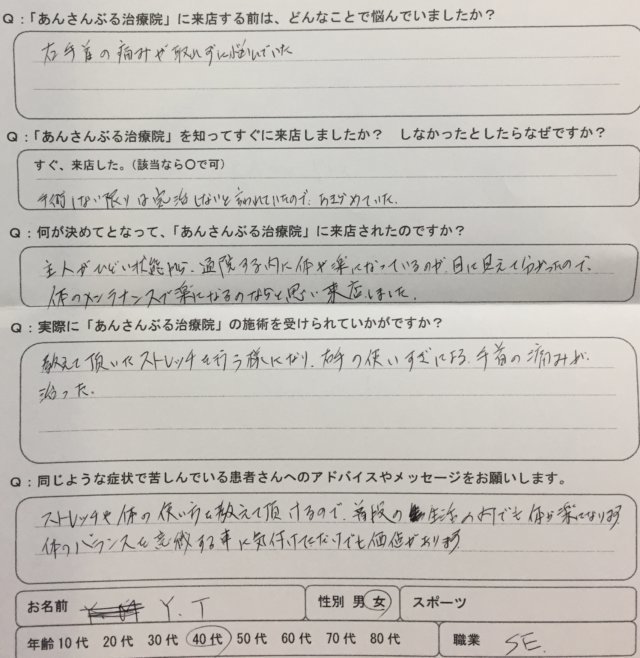 Q：「あんさんぶる治療院」に来店する前は、どんなことで悩んでいましたか？
右手首の痛みが取れずに悩んでいた
Q：「あんさんぶる治療院」を知ってすぐに来店しましたか？　しなかったとしたらなぜですか？
すぐ、来店した。（該当なら〇で可）
手術しない限りは完治しないと言われていたので、あきらめていた。
Q：何が決めてとなって、「あんさんぶる治療院」に来店されたのですか？
主人がひどい状態から、通院する内に体が楽になっているのが、目に見えて分かったので、
体のメンテナンスで楽になるのならと思い来店しました。
Q：実際に「あんさんぶる治療院」の施術を受けられていかがですか？
教えて頂いたストレッチを行う様になり、右手の使いすぎによる、手首の痛みが、
治った。
Q：同じような症状で苦しんでいる患者さんへのアドバイスやメッセージをお願いします。
ストレッチや体の使い方を教えて頂けるので、普段の生活の内でも体が楽になります
体のバランスを意識する事に気付けただけでも価値があります
お名前 Y.T 性別 男 女 スポーツ
年齢 10代 20代 30代 40代 50代 60代 70代 80代 職業 SE.